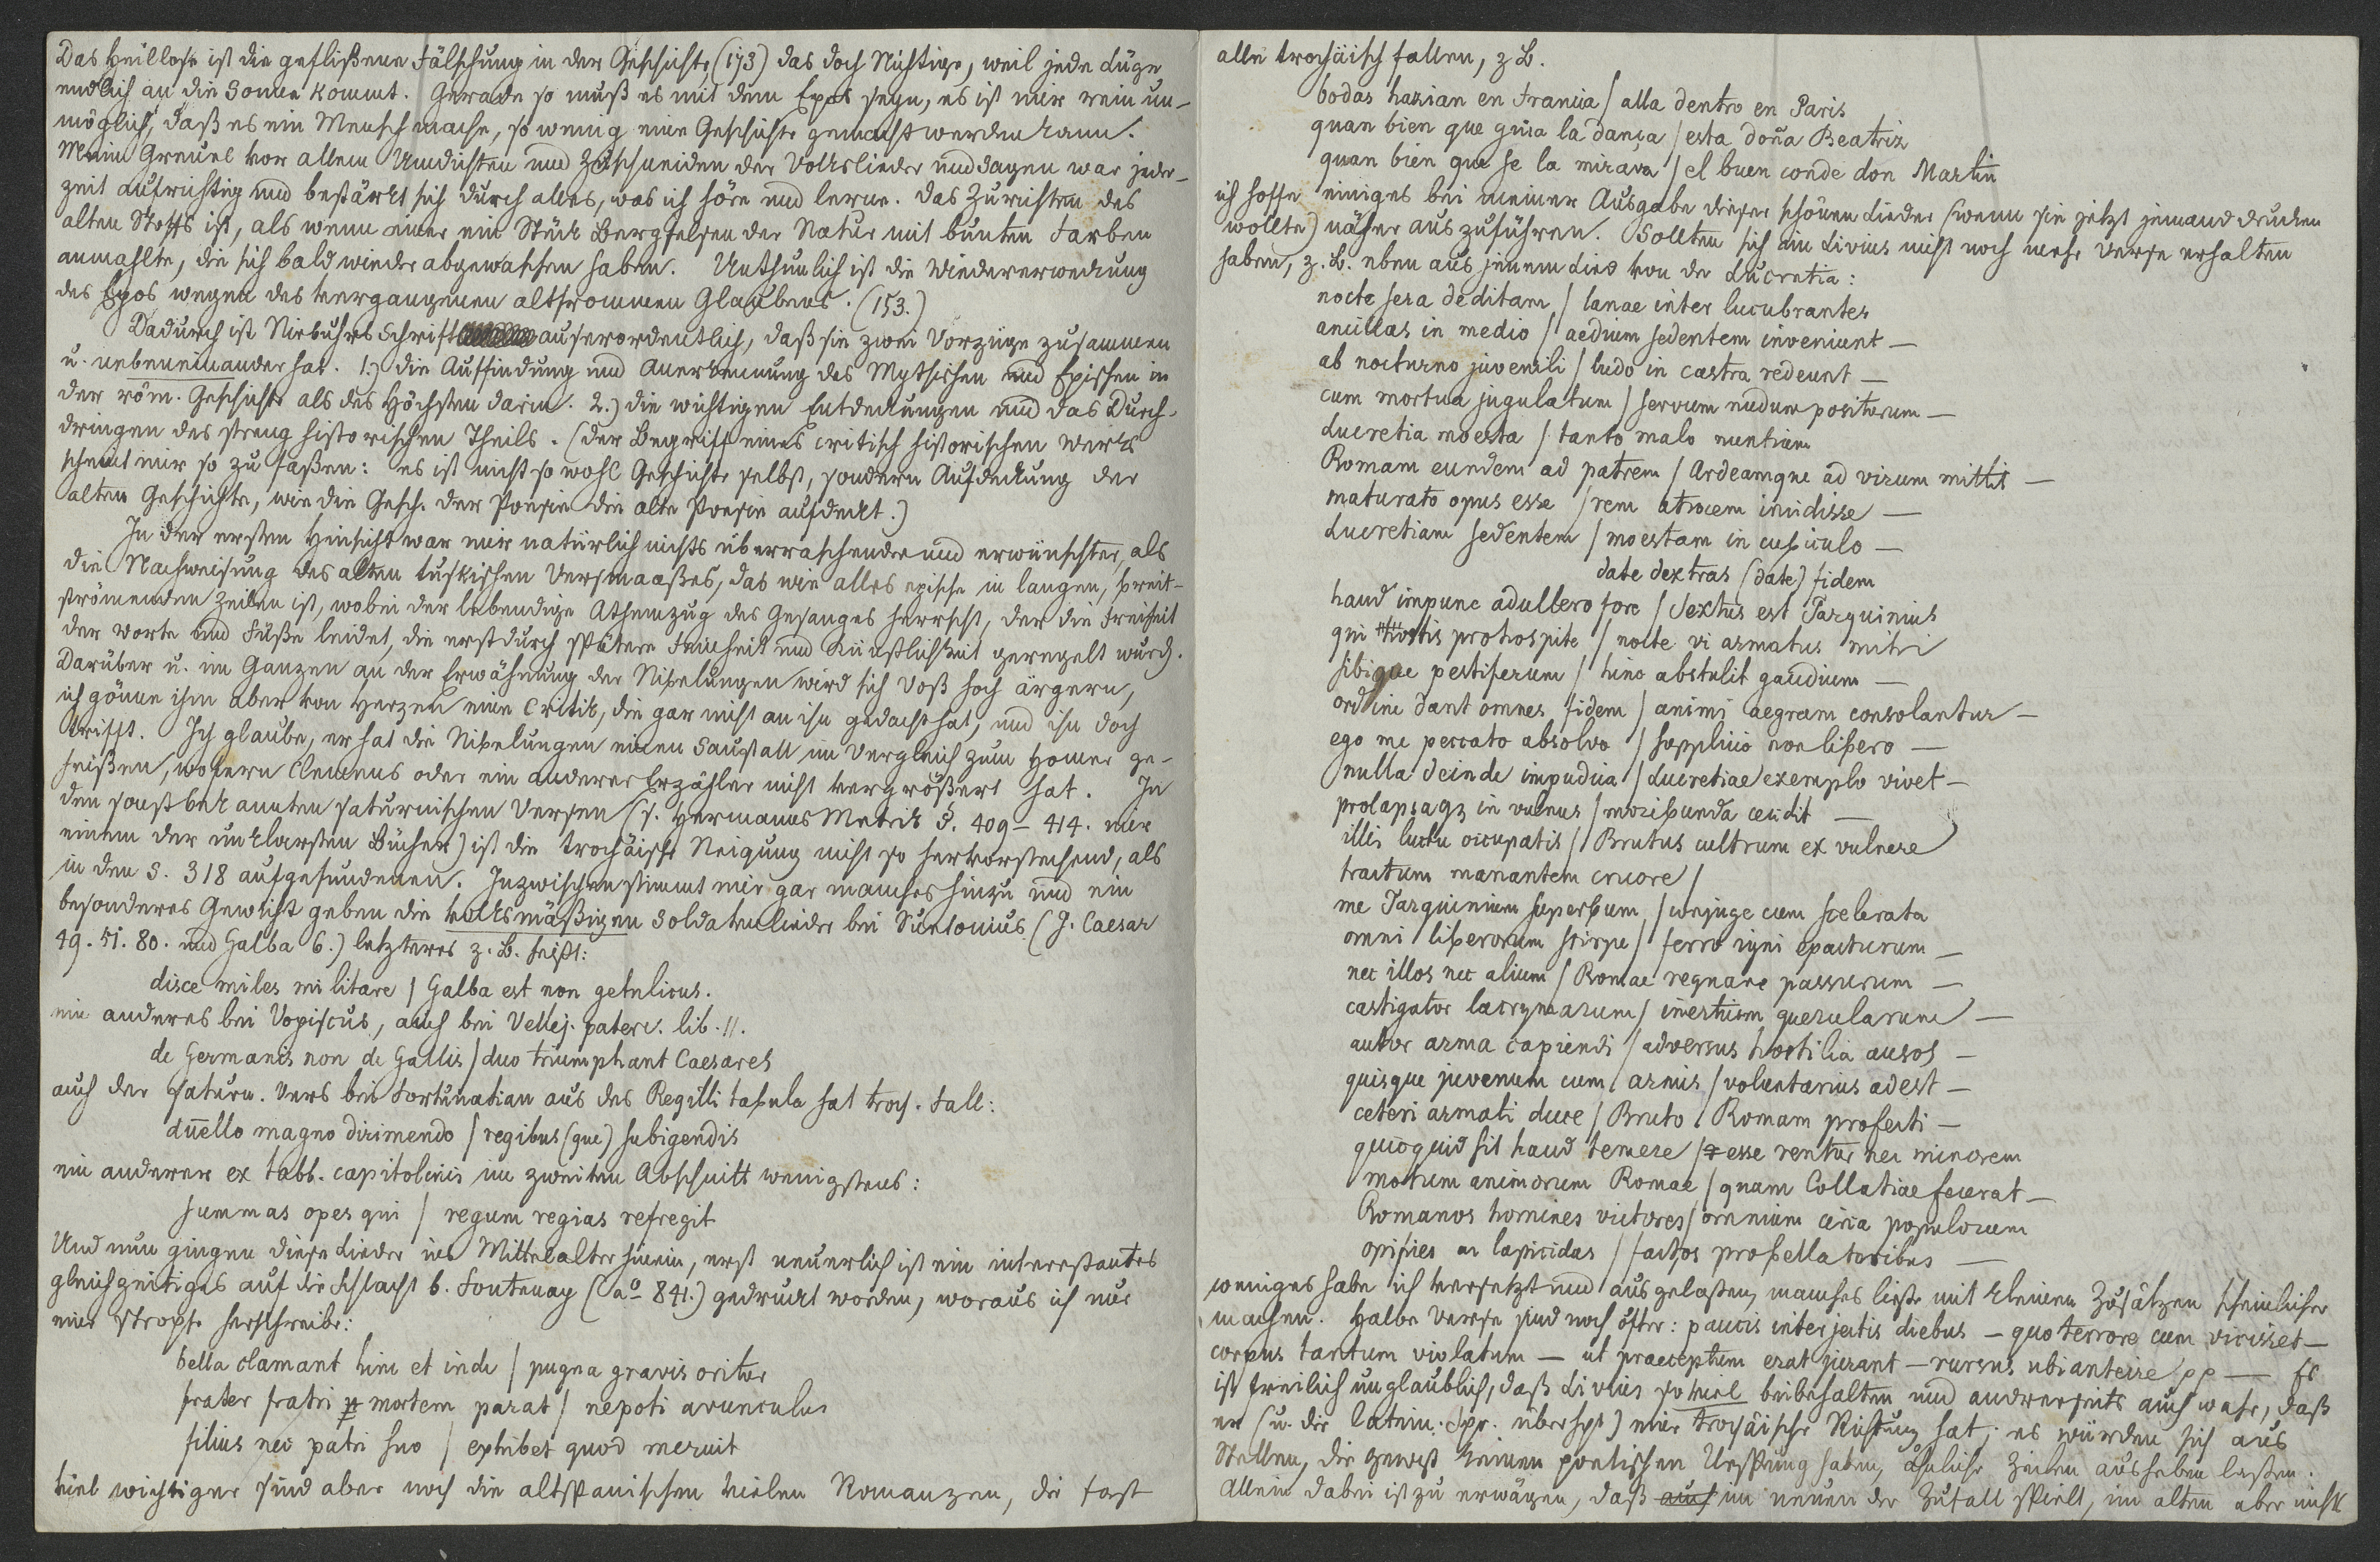 Das Heillose ist die geflißene Fälschung in der Geschichte, (173) das doch Nichtige, weil jede Lüge
endlich an die Sonne kommt. Gerade so muß es mit dem Epos seyn, es ist mir rein un-
möglich, daß es ein Mensch mache, so wenig eine Geschichte gemacht werden kann.
Mein Greuel vor allem Umdichten und Zuschneiden der Volkslieder und Sagen war jeder-
zeit aufrichtig und bestärkt sich durch alles, was ich höre und lerne. Das Zurichten des
alten Stoffs ist, als wenn einer ein Stück Bergfelsen der Natur mit bunten Farben
anmahlte, die sich bald wieder abgewaschen haben. Unthunlich ist die Wiedererweckung
des Epos wegen des vergangenen altfrommen Glaubens. (153.)
Dadurch ist Niebuhrs Schrift auserordentlich, daß sie zwei Vorzüge zusammen
u. nebeneinander hat. 1.) die Auffindung und Anerkennung des Mythischen und Epischen in
der röm. Geschichte als des Höchsten darin. 2.) die wichtigen Entdeckungen und das Durch-
dringen des streng historischen Theils. (Der Begriff eines critisch historischen Werks
scheint mir so zu faßen: es ist nicht so wohl Geschichte selbst, sondern Aufdeckung der
alten Geschichte, wie die Gesch. der Poesie die alte Poesie aufdeckt.)
In der ersten Hinsicht war mir natürlich nichts überraschender und erwünschter, als
die Nachweisung des alten tuskischen Versmaaßes, das wie alles epische in langen, breit-
strömenden Zeilen ist, wobei der lebendige Athemzug des Gesanges herrscht, der die Freiheit
der Worte und Füße leidet, die erst durch spätere Feinheit und Künstlichkeit geregelt wurd.
Darüber u. im Ganzen an der Erwähnung der Nibelungen wird sich Voß hoch ärgern,
ich gönne ihm aber von Herzen eine Critik, die gar nicht an ihn gedacht hat, und ihn doch
trifft. Ich glaube, er hat die Nibelungen einen Saustall im Vergleich zum Homer ge-
heißen, wofern Clemens oder ein anderer Erzähler nicht vergrößert hat. In
den sonst bekannten saturnischen Versen (s. Hermanns Metrik §. 409 – 414. mir
einem der unklarsten Bücher) ist die trochäische Neigung nicht so hervorstechend, als
in den S. 318 aufgefundenen. Inzwischen stimmt mir gar manches hinzu und ein
besonderes Gewicht geben die volksmäßigen Soldatenlieder bei Suetonius (J. Caesar
49. 51. 80. und Galba 6.) letzteres z. B. heißt:
disce miles militare / Galba est non getulicus.
ein anderes bei Vopiscus, auch bei Vellej. paterc. lib. II.
de Germanis non de Gallis / duo triumphant Caesares
auch der saturn. Vers bei Fortunatian aus des Regilli tabula hat troch. Fall:
duello magno dirimendo / regibus (que) subigendis
ein anderer ex tabb. capitolinis im zweiten Abschnitt wenigstens:
summas opes qui / regum regias refregit
Und nun gingen diese Lieder ins Mittelalter hinein, erst neuerlich ist ein interessantes
gleichzeitiges auf die Schlacht b. Fontenay (aº 841.) gedruckt worden, woraus ich nur
eine Strophe herschreibe:
bella clamant hinc et inde / pugna gravis oritur
frater fratri mortem parat / nepoti avunculus
filius nec patri suo / exhibet quod meruit
viel wichtiger sind aber noch die altspanischen vielen Romanzen, die fast
alle trochäisch fallen, z B.
bodas hazian en Francia / alla dentro en Paris
quan bien que guia la dança / esta doña Beatriz
quan bien que se la mirava / el buen conde don Martin
ich hoffe einiges bei meiner Ausgabe dieser schönen Lieder (wenn sie jetzt jemand drucken
wollte) näher auszuführen. Sollten sich im Livius nicht noch mehr Verse erhalten
haben, z. B. eben aus jenem Lied von der Lucretia:
nocte sera deditam / lanae inter lucubrantes
ancillas in medio / aedium sedentem inveniunt —
ab nocturno juvenili / ludo in castra redeunt —
cum mortua jugulatum / servum nudum positurum —
Lucretia moesta / tanto malo nuntium
Romam eundem ad patrem / Ardeamque ad virum mittit —
maturato opus esse / rem atrocem incidisse —
Lucretiam sedentem / moestam in cubiculo —
date dextras (date) fidem
haud impune adultero fore / Sextus est Tarquinius
qui hostis pro hospite / nocte vi armatus mihi
sibique pestiferum / hinc abstulit gaudium —
ordine dant omnes fidem / animi aegram consolantur —
ego me peccato absolvo / supplicio non libero —
nulla deinde impudica / Lucretiae exemplo vivet —
prolapsaq in vulnus / moribunda cecidit —
illis luctu occupatis / Brutus cultrum ex vulnere
tractum manantem cruore /
me Tarquinium superbum / conjuge cum scelerata
omni liberorum stirpe / ferro igni exacturum —
nec illos nec alium / Romae regnare passurum —
castigator lacrymarum / inertium querelarum —
autor arma capiendi / adversus hostilia ausos —
quisque juvenum cum armis / voluntarius adest —
ceteri armati duce / Bruto Romam profecti —
quicquid sit haud temere / esse rentur nec minorem
motum animorum Romae / quam Collatiae fecerat —
Romanos homines victores / omnium circa populorum
opifices ac lapicidas / factos pro bellatoribus —
weniges habe ich versetzt und ausgelaßen, manches ließe mit kleinen Zusätzen scheinlicher
machen. Halbe Verse sind noch öfter: paucis interjectis diebus – quo terrore cum vicisset —
corpus tantum violatum – ut praeceptum erat jurant – rursus ubi anterre pp — Es
ist freilich unglaublich, daß Livius so viel beibehalten und andrerseits auch wahr, daß
er (u. die latein. Spr. überhpt) eine trochäische Richtung hat; es würden sich aus
Stellen, die gewiß keinen poetischen Ursprung haben, ähnliche Zeilen ausheben laßen.
Allein dabei ist zu erwägen, daß auch im neuen der Zufall spielt, im alten aber nicht